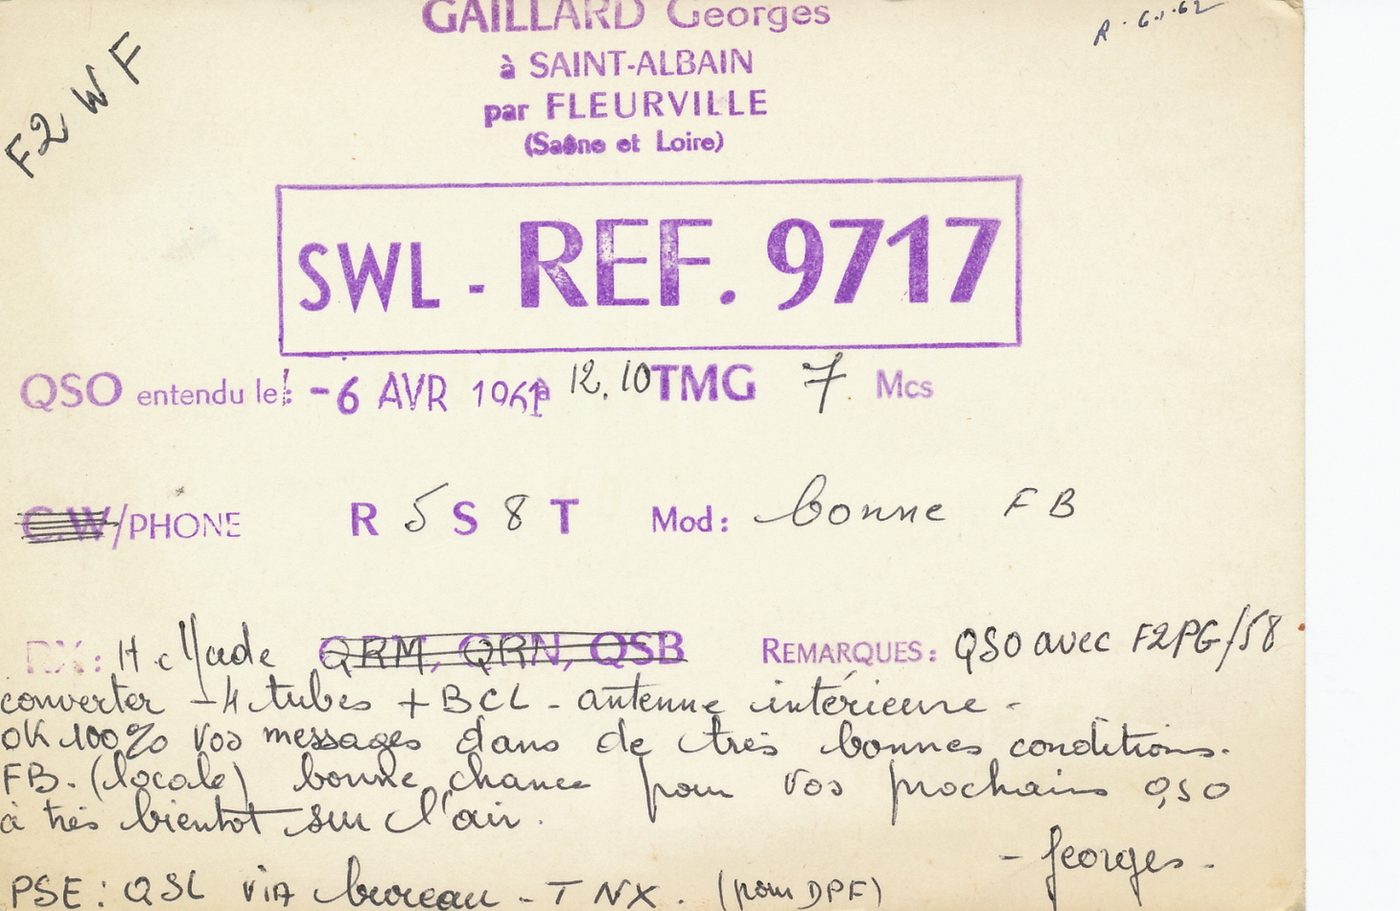 GAILLARD Georges
R. 6.1.62
à SAINT-ALBAIN
par FLEURVILLE
(Saône et Loire)
F2WF
SWL - REF. 9717
QSO entendu le: -6 AVR 1961 à 12.10 TMG 7 Mcs
C.W/PHONE R 5 S 8 T Mod: bonne FB
RX: H. Made QRM, QRN, QSB REMARQUES: QSO avec F2PG/58
converter - 4 tubes + BCL - antenne intérieure -
OK 100% vos messages dans de très bonnes conditions.
FB. (locale) bonne chance pour vos prochains QSO
à très bientot sur l'air.
- Georges -
PSE: QSL viA bureau - TNX. (pour DPF)